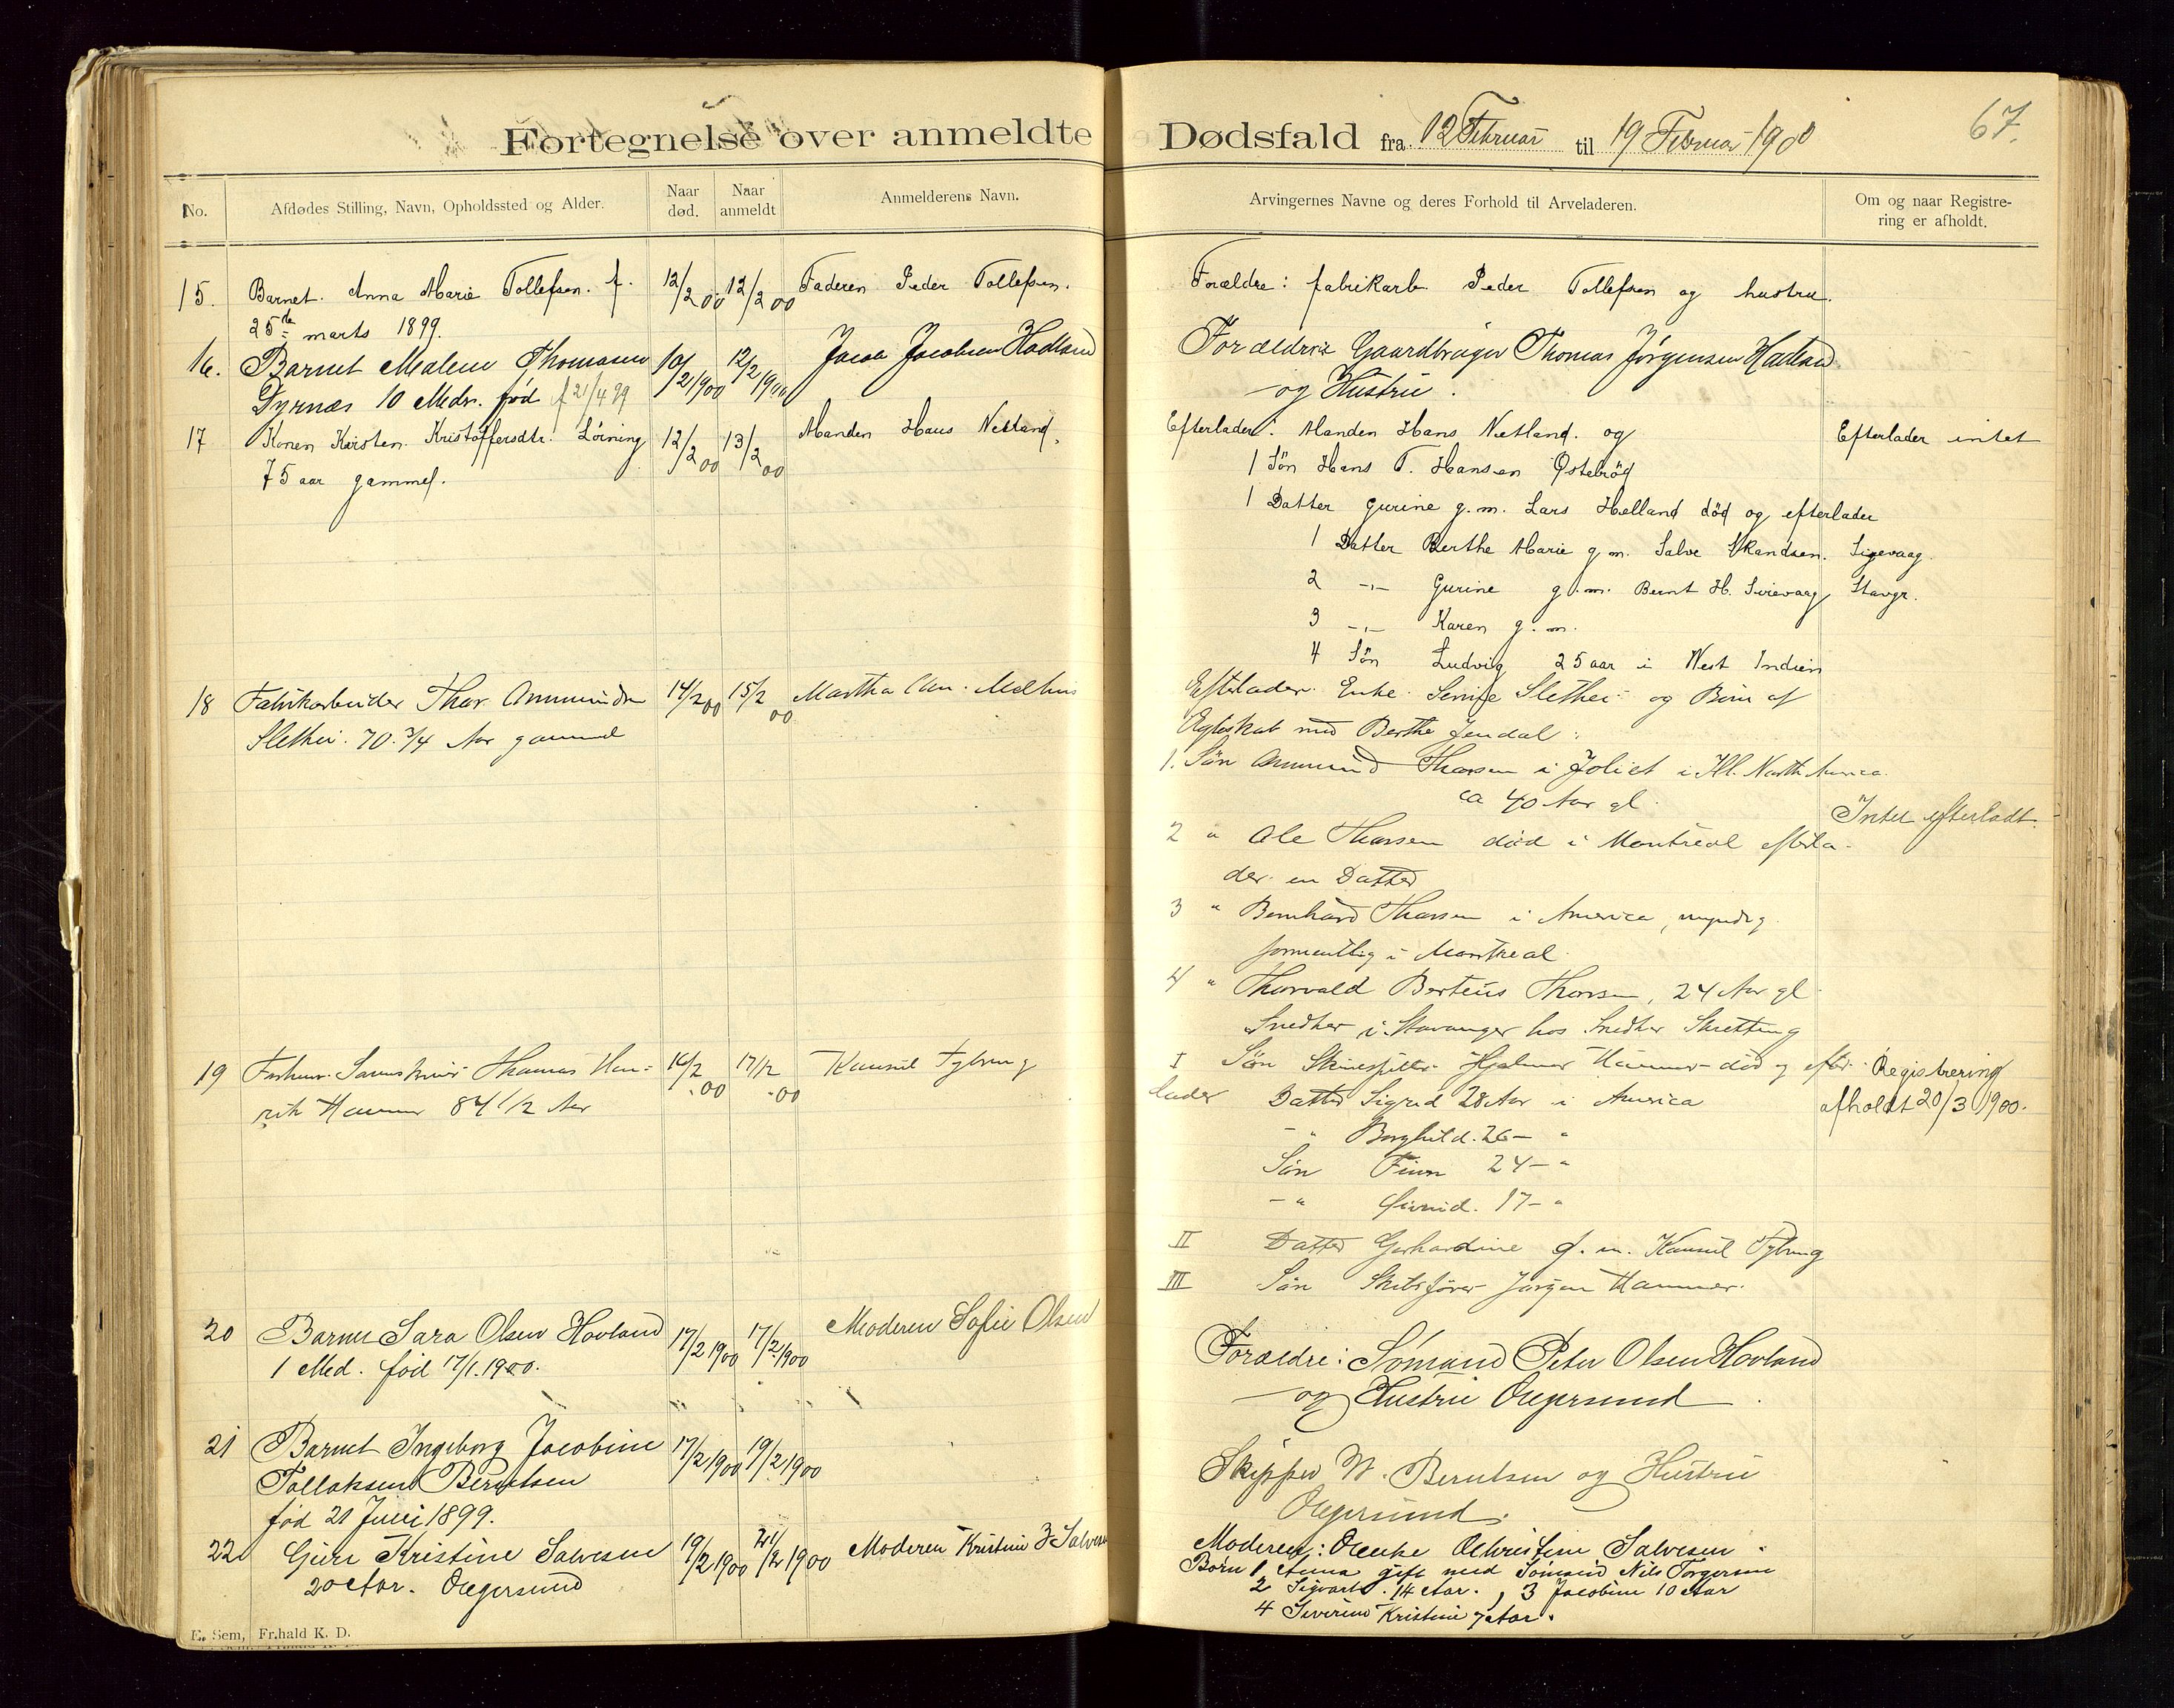 Fortegnelse over anmeldte Dødsfald fra 12 Februar til 19 Februar 1900
67.
No.
Afdødes Stilling, Navn, Opholdssted og Alder.
Naar død.
Naar anmeldt
Anmelderens Navn.
Arvingernes Navne og deres Forhold til Arveladeren.
Om og naar Registrering er afholdt.
15. Barnet. Anna Marie Tollefsen. f.
25de marts 1899.
12/2 00
12/2 00
Faderen Peder Tollefsen.
Forældre: fabrikarb Peder Tollefsen og hustru.
16. Barnet Malene Thomasen
Dyrnæs 10 Mdr. fød f 21/4 99
10/2 1900
12/2 1900
Jacob Jacobsen Hadland
Forældre: Gaardbruger Thomas Jørgensen Hadland
og Hustru.
17 Konen Karsten. Kristoffersdtr. Lørning
75 aar gammel.
12/2 00
13/2 00
Manden Hans Netland.
Efterlader: Manden Hans Netland. og
Efterlader intet
1 Sön Hans T. Hansen Östebröd
1 Datter Gurine g.m. Lars Helland död og efterlader
1 Datter Berthe Marie g.m. Salve Skandsen. Sigevaag.
2 -"- Gurine g.m. Bernt H. Sirevaag Stavgr.
3 -"- Karen g.m.
4 Sön Ludvig 25 aar i West Indien
18 Fabrikarbeider Thor Ammundsen
Slethei. 70 3/4 Aar gammel
14/2 00
15/2 00
Martha Melhus
Efterlader. Enke Slethei og Børn af
Egteskab med Berthe Jendal:
1. Søn Ammund Thorsen i Joliet i Ill. North America
ca 40 Aar gl.
Intet efterladt.
2 " Ole Thorsen død i Montreal efterla-
der en Datter
3 " Bernhard Thorsen i America, myndig
formentlig i Montreal
4 " Thorvald Berteus Thorsen, 24 Aar gl
Snedker i Stavanger hos Snedker Skretting
19 Thomas Hen-
rik Hammer 84 1/2 Aar
16/2 00
17/2 00
Konsul Tybring
I Søn Skuespiller Hjalmar Hammer død og efter-
lader Datter Sigrid 28 Aar i America
Registrering
afholdt 20/3 1900.
-" Borghild. 26 - "
Søn Finn 24 - "
-" Eivind. 17 - "
II Datter Gerhardine g.m. Konsul Tybring
III Søn Skibsfører Jørgen Hammer.
20 Barnet Sara Olsen Hovland
1 Md. fød 17/1. 1900.
17/2 1900
17/2 1900
Moderen Sofie Olsen
Forældre: Sømand Peter Olsen Hovland
og Hustru Egersund
21 Barnet Ingeborg Jacobine
Tollaksen Berntsen
fød 21 Juni 1899.
17/2 1900
19/2 1900
Skipper W. Berntsen og Hustru
Egersund.
22 Guri Kristine Salvesen
20 Aar. Egersund
19/2 1900
21/2 1900
Moderen Kristine Salvesen
Moderen: Enke Christine Salvesen.
Børn 1 Anna gift med Sømand Nils Torgersen
2 Sigvart 14 Aar., 3 Jacobine 10 Aar
4 Severine Kristine 7 Aar.
E. Sem, Fr.hald K. D.